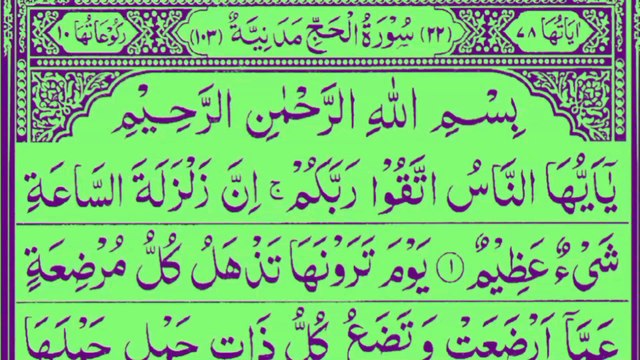 اٰیَاتُهَا ٧٨ (٢٢) سُوْرَةُ الْحَجِّ مَدَنِیَّةٌ (١٠٣) رُكُوْعَاتُهَا ١٠
بِسْمِ اللهِ الرَّحْمٰنِ الرَّحِیْمِ
یٰۤاَیُّهَا النَّاسُ اتَّقُوْا رَبَّكُمْ ۚ اِنَّ زَلْزَلَةَ السَّاعَةِ
شَیْءٌ عَظِیْمٌ ﴿١﴾ یَوْمَ تَرَوْنَهَا تَذْهَلُ كُلُّ مُرْضِعَةٍ
عَمَّاۤ اَرْضَعَتْ وَتَضَعُ كُلُّ ذَاتِ حَمْلٍ حَمْلَهَا